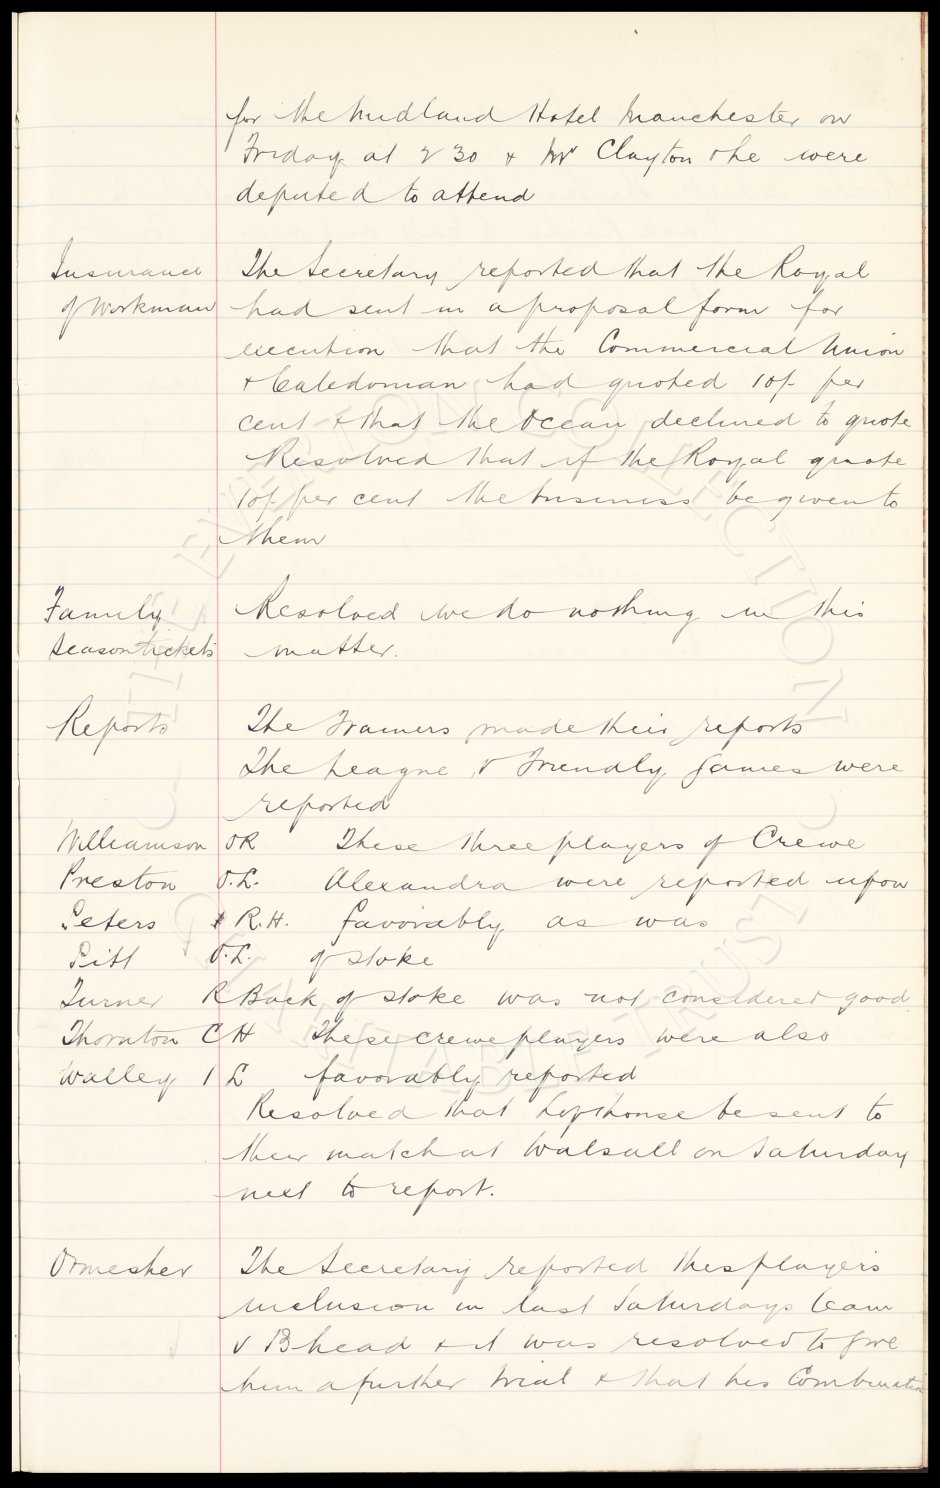 for the Midland Hotel Manchester on
Friday at 2 30 & Mr Clayton & he were
deputed to attend
Insurance The Secretary reported that the Royal
of Workman had sent in a proposal form for
execution that the Commercial Union
& Caledonian had quoted 10/- per
cent & that the Ocean declined to quote
Resolved that if the Royal quote
10/- per cent the business be given to
them
Family Resolved we do nothing in this
Season tickets matter.
Reports The Trainers made their reports
The League & Friendly games were
reported
Williamson OR These three players of Crewe
Preston O.L. Alexandra were reported upon
Peters & R.H. favorably as was
Pitt O.L. of Stoke
Turner R Back of Stoke was not considered good
Thornton C H These crewe players were also
Walley I L favorably reported
Resolved that Lofthouse be sent to
their match at Walsall on Saturday
next to report.
Ormesher The Secretary reported this players
inclusion in last Saturdays team
v Bhead & it was resolved to give
him a further trial & that his Combination
THE EVERTON COLLECTION
CHARITABLE TRUST